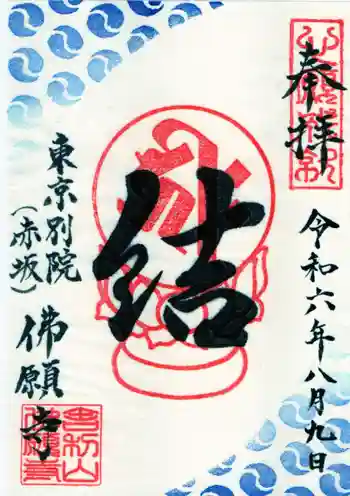 奉拝
令和六年八月九日
結
東京別院
(赤坂)
佛願寺